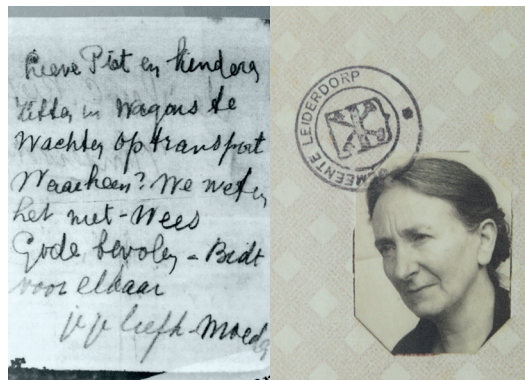 Lieve Piet en kinders
Zitten in wagons te
Wachten op transport
Waarheen? We weten
het niet - Wees
Gode bevolen - Bidt
voor elkaar
je je liefh. Moeder
GEMEENTE LEIDERDORP